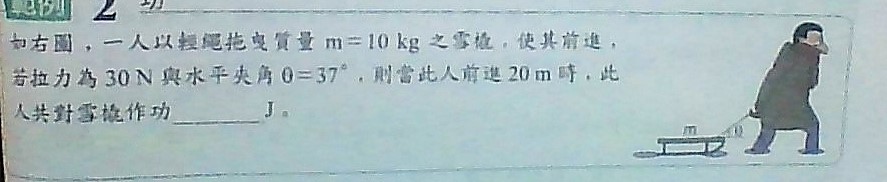 範例 2 功
如右圖，一人以輕繩拖曳質量 m=10 kg 之雪橇，使其前進，
若拉力為 30 N 與水平夾角 θ=37°，則當此人前進 20 m 時，此
人共對雪橇作功______J。
m θ